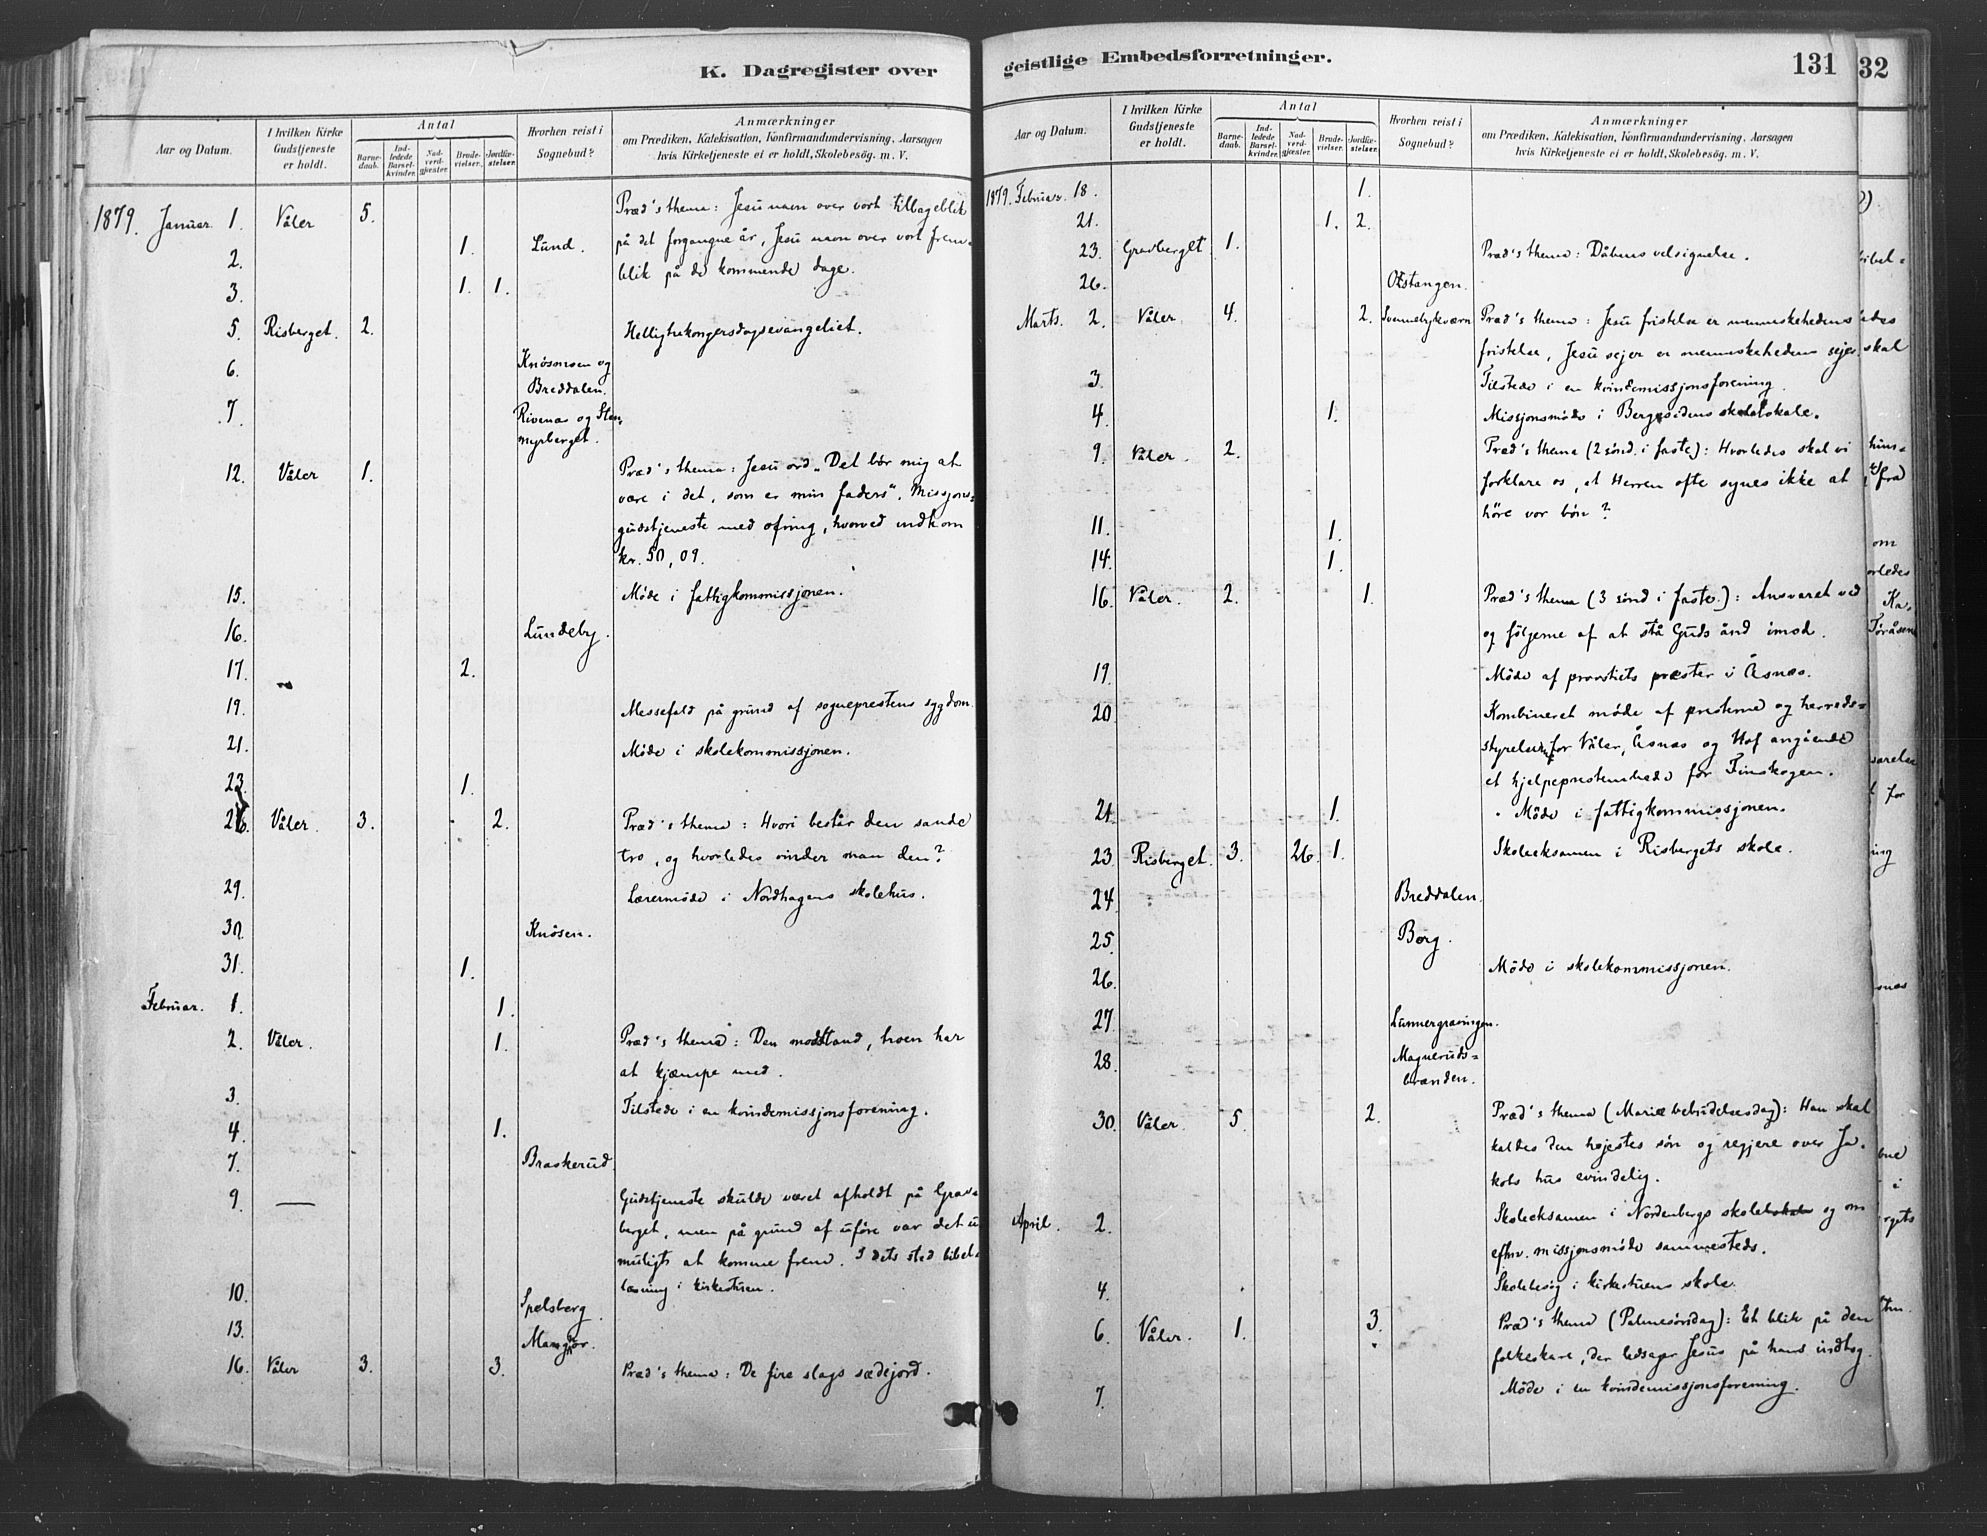 K. Dagregister over
Aar og Datum.
I hvilken Kirke Gudstjeneste er holdt.
Antal
Barne-daab.
Ind-ledede Barsel-kvinder.
Nad-verd-gjæster.
Brude-vielser.
Jordfæ-stelser.
Hvorhen reist i Sognebud?
Anmærkninger
om Prædiken, Katekisation, Konfirmandundervisning, Aarsagen
hvis Kirketjeneste ei er holdt, Skolebesög. m. V.
1879. Januar. 1. Våler 5. Præd's thema: Jesu navn over vort tilbageblik
2. 1. Lund. på det forgangne år, Jesu navn over vort frem-
blik på de kommende dage.
3. 1. 1.
5. Risberget. 2. Helligtrekongersdagsevangeliet.
6. Knösmoen og
Breddalen.
7. Rivenæs og Sten-
myrberget.
12. Våler 1. Præd's thema: Jesu ord „Det bør mig at
være i det, som er min faders". Missjons-
gudstjeneste med ofring, hvorved indkom
kr. 50,09.
15. Möde i fattigkommissjonen.
16. Lundeby.
17. 2.
19. Messefald på grund af sogneprestens sygdom.
21. Möde i skolekommissjonen.
23. 1.
26. Våler. 3. 2. Præd's thema: Hvori består den sande
tro, og hvorledes vinder man den?
29. Lærermöde i Nordhagens skolehus.
30. Knösen.
31. 1.
Februar. 1. 1.
2. Våler. 1. Præd's thema: Den modstand, troen har
at kjæmpe med.
3. Tilstede i en kvindemissjonsforening.
4. 1.
7. Braskerud.
9. — Gudstjeneste skulde været afholdt på Grav-
berget, men på grund af uføre var det u-
muligt at komme frem. I dets sted bibel-
læsning i kirkestuen.
10. Spelsberg.
13.
16. Våler 3. 3. Præd's thema: De fire slags sædejord.
geistlige Embedsforretninger.
131
Aar og Datum.
I hvilken Kirke Gudstjeneste er holdt.
Antal
Barne-daab.
Ind-ledede Barsel-kvinder.
Nad-verd-gjæster.
Brude-vielser.
Jordfæ-stelser.
Hvorhen reist i Sognebud?
Anmærkninger
om Prædiken, Katekisation, Konfirmandundervisning, Aarsagen
hvis Kirketjeneste ei er holdt, Skolebesög. m. V.
1879. Februar. 18. 1.
21. 1. 2.
23. Gravberget 1. Præd's thema: Dåbens velsignelse.
26.
Marts. 2. Våler 4. 2. Præd's thema: Jesu fristelse er menneskehedens
fristelse, Jesu sejer er menneskehedens sejer.
3. Tilstede i en kvindemissjonsforening.
4. 1. Missjonsmöde i Bergesidens
9. Våler. 2. Præd's thema (2 sönd. i faste): Hvorledes skal vi
forklare os, at Herren ofte synes ikke at
höre vor bön?
11. 1.
14. 1.
16. Våler. 2. 1. Præd's thema (3 sönd i faste.): Ansvaret ved
og fölgerne af at stå Guds ånd imod.
19. Möde af provstiets præster i Åsnæs.
20 Kombineret möde af presterne og herreds-
styrelserne for Våler, Åsnæs og Hof angående
et hjelpeprestembede for Finskogen.
21. 1. Möde i fattigkommissjonen.
23. Risberget. 3. 26. 1. Skoleeksamen i Risbergets skole.
24. Breddalen.
25. Borg.
26. Möde i skolekommissjonen.
27.
28. Magneruds-
brænden.
30. Våler. 5. 2. Præd's thema (Mariæ bebudelsesdag): Han skal
kaldes den højestes sön og regjere over Ja-
kobs hus evindelig.
April. 2. Skoleeksamen i Nordenbergs og om
efterm. missjonsmöde sammesteds.
4. Skolebesög i kirkestuens skole.
6. Våler. 1. 3. Præd's thema (Palmesöndag): Et blik på den
folkeskare, der ledsager Jesus på hans indtog.
7. Möde i en kvindemissjonsforening.
32